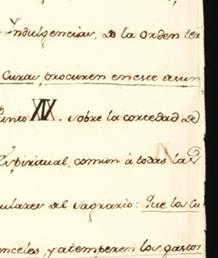 Yndulgencias, de la Orden ter
Curas, procuren en este asun
Punto XIX. sobre la cortedad de
Espiritual, comun à todas la
culares del sagrario: Que los Cu
anceles, y atemperen los gastos